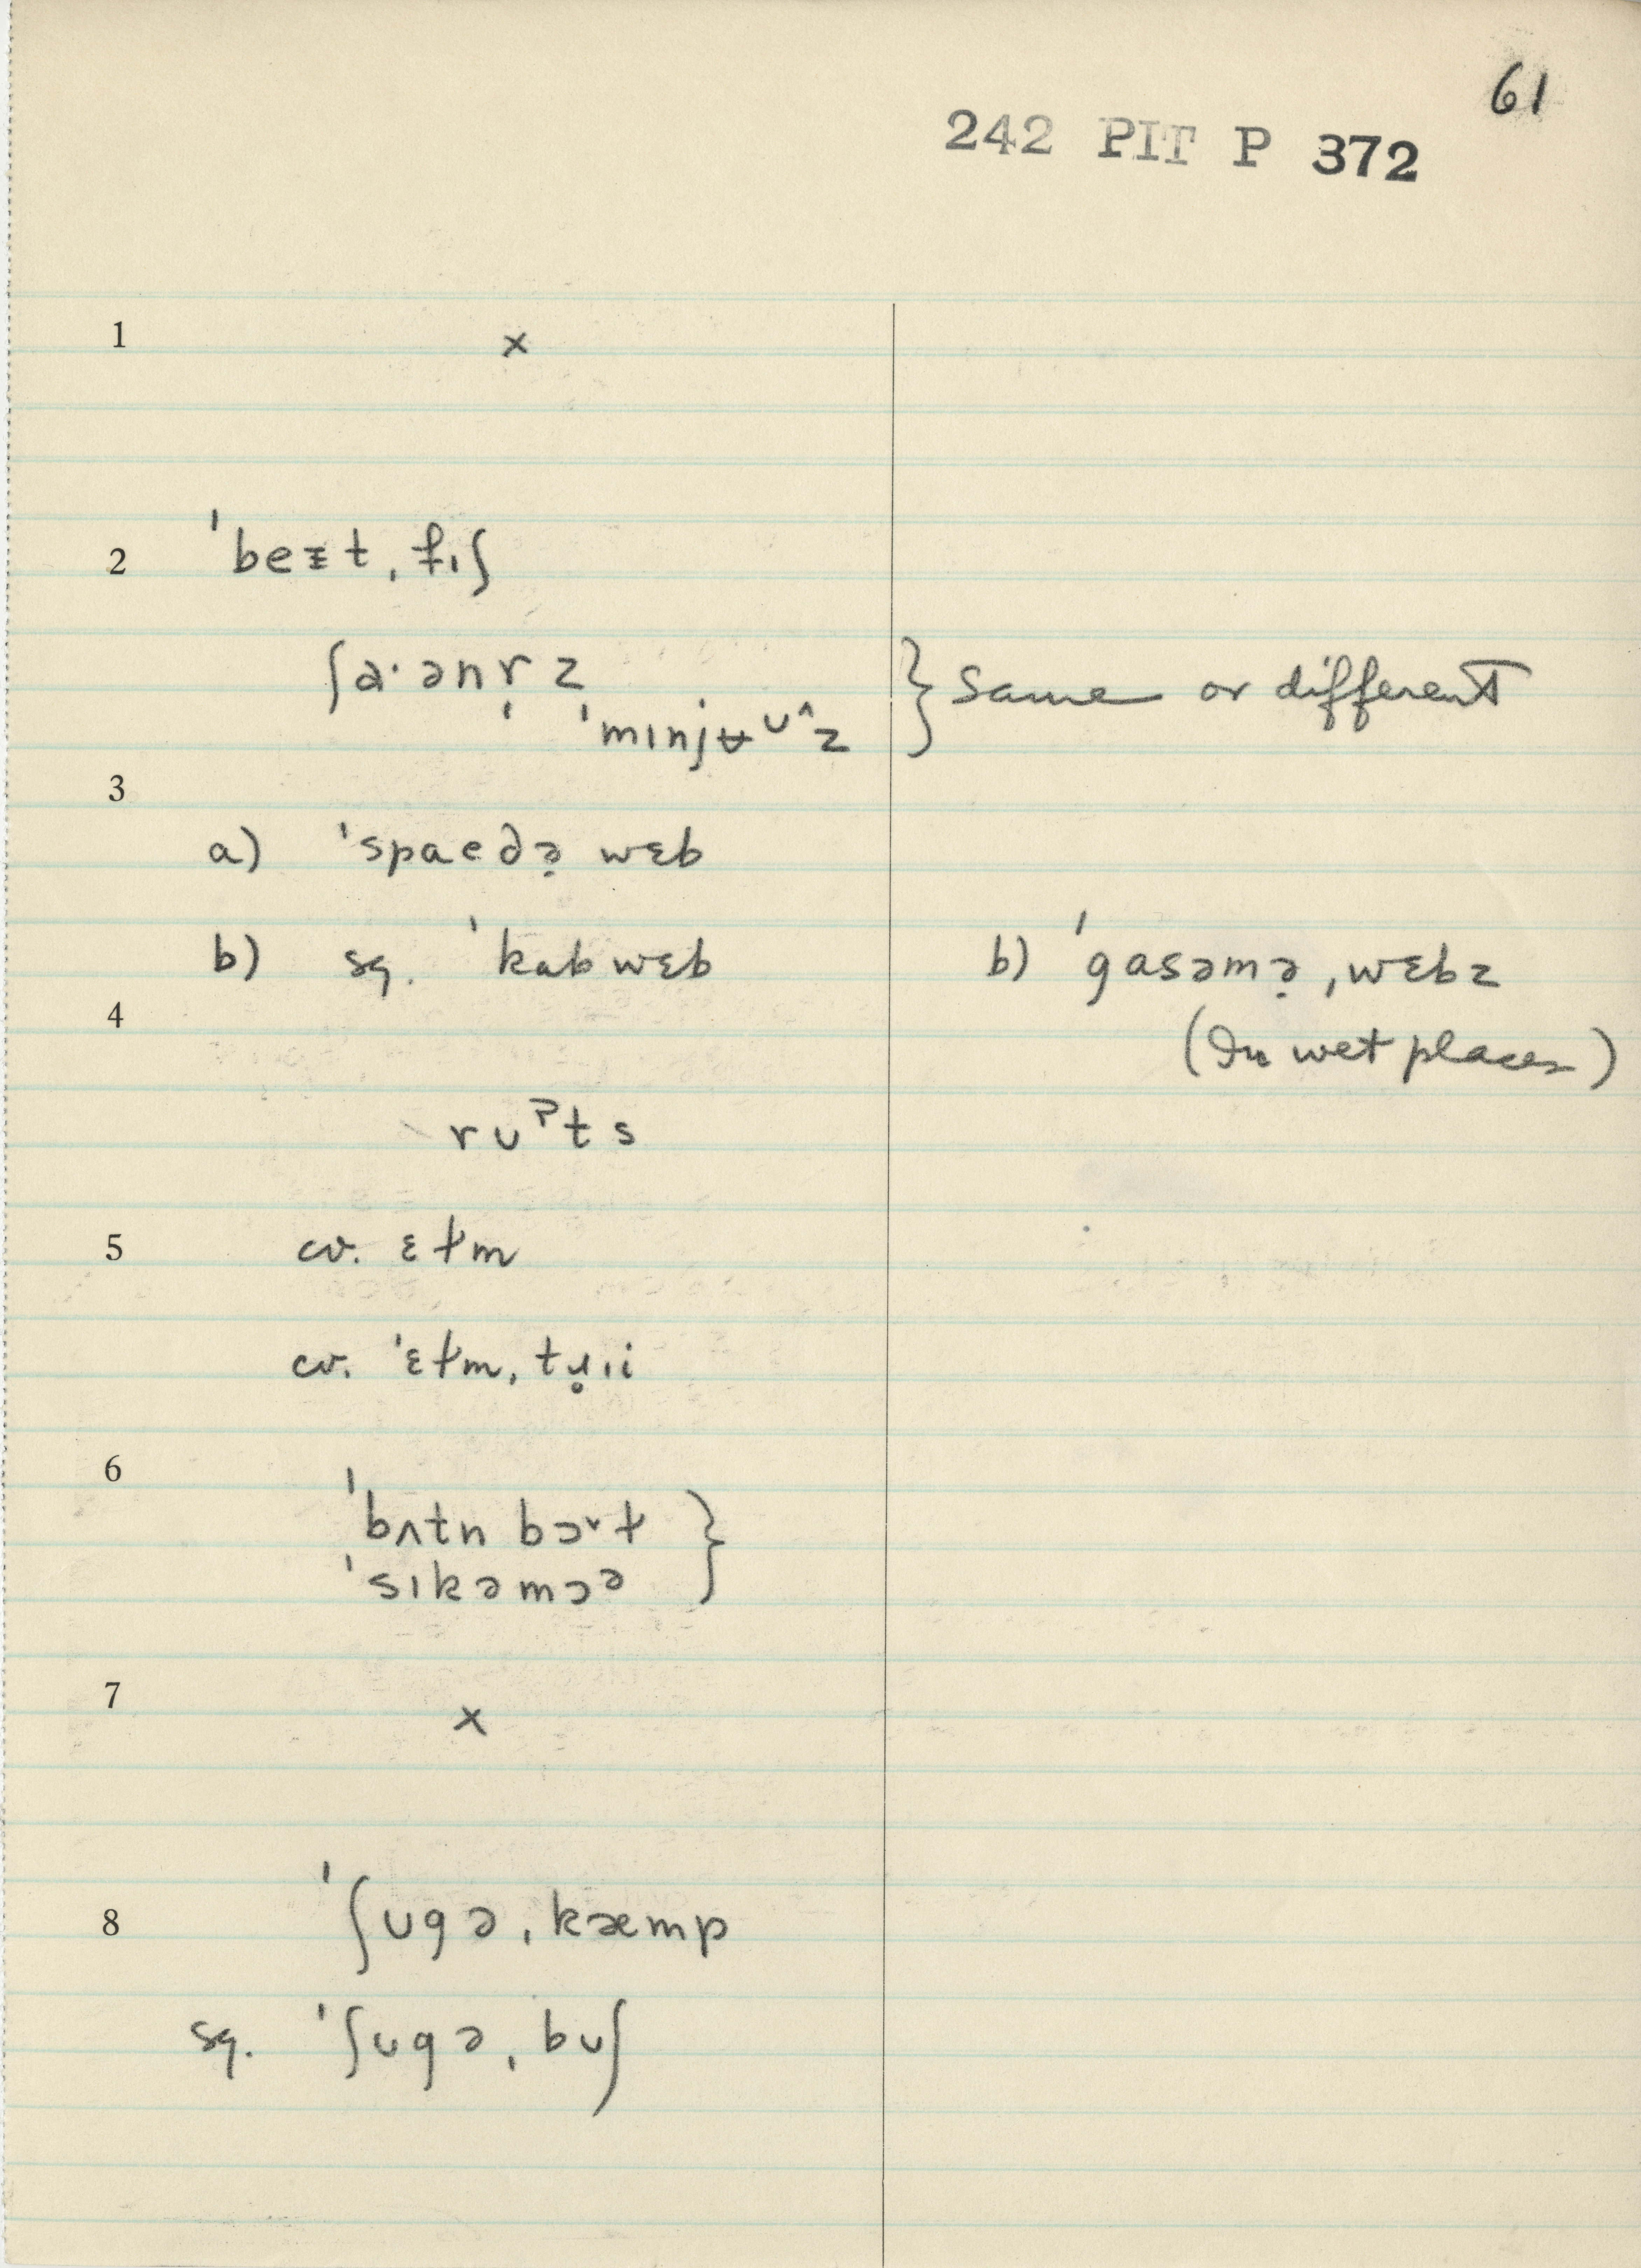 61
242 PIT P 372
1 ×
2 ˈbeɪt ˌfɪʃ
ʃaˑənɚz } same or different
ˈmɪnjʉᴜˆz
3
a) ˈspaedə̣ wɛb
b) sq. ˈkabwɛb b) ˈgasəmə̣ ˌwɛbz
4 (In wet places)
rᴜˀts
5 cv. ɛɫm
cv. ˈɛɫm ˌtɹ̥ɪi
6
ˈbʌtn bɔ˅ɫ }
ˈsɪkəmɔᵊ
7 ×
8 ˈʃᴜgə ˌkæmp
sq. ˈʃᴜgə ˌbᴜʃ